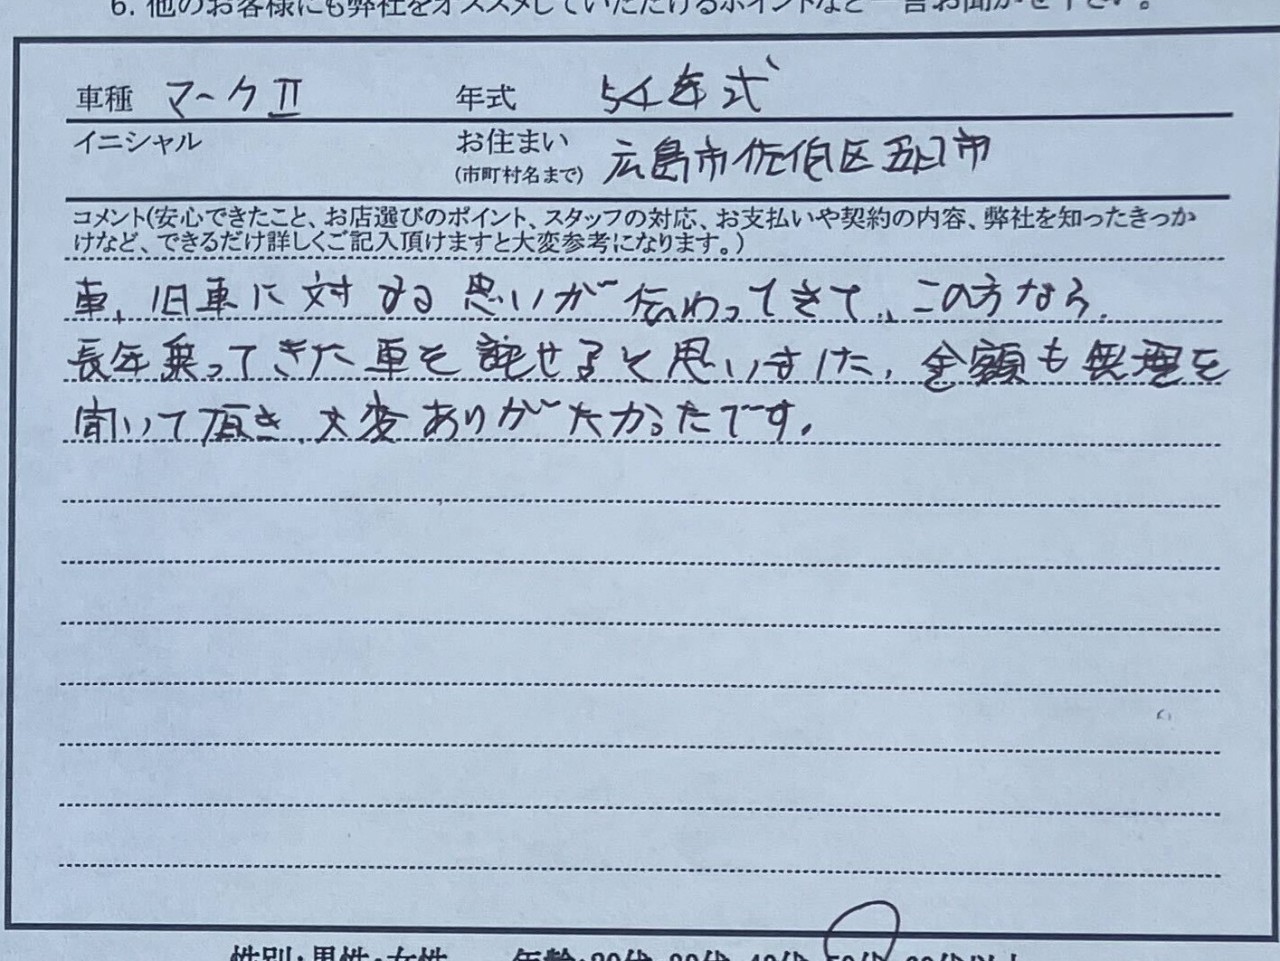 6. 他のお客様にも弊社をオススメしていただけるポイントなど一言お聞かせ下さい。
車種 マークⅡ 年式 54年式
イニシャル お住まい
(市町村名まで) 広島市佐伯区五日市
コメント(安心できたこと、お店選びのポイント、スタッフの対応、お支払いや契約の内容、弊社を知ったきっか
けなど、できるだけ詳しくご記入頂けますと大変参考になります。)
車、旧車に対する思いが伝わってきて、この方なら、
長年乗ってきた車を託せると思いました、金額も無理を
聞いて頂き、大変ありがたかったです。
性別:男性・女性 年齢:20代 30代 40代 50代 60代以上